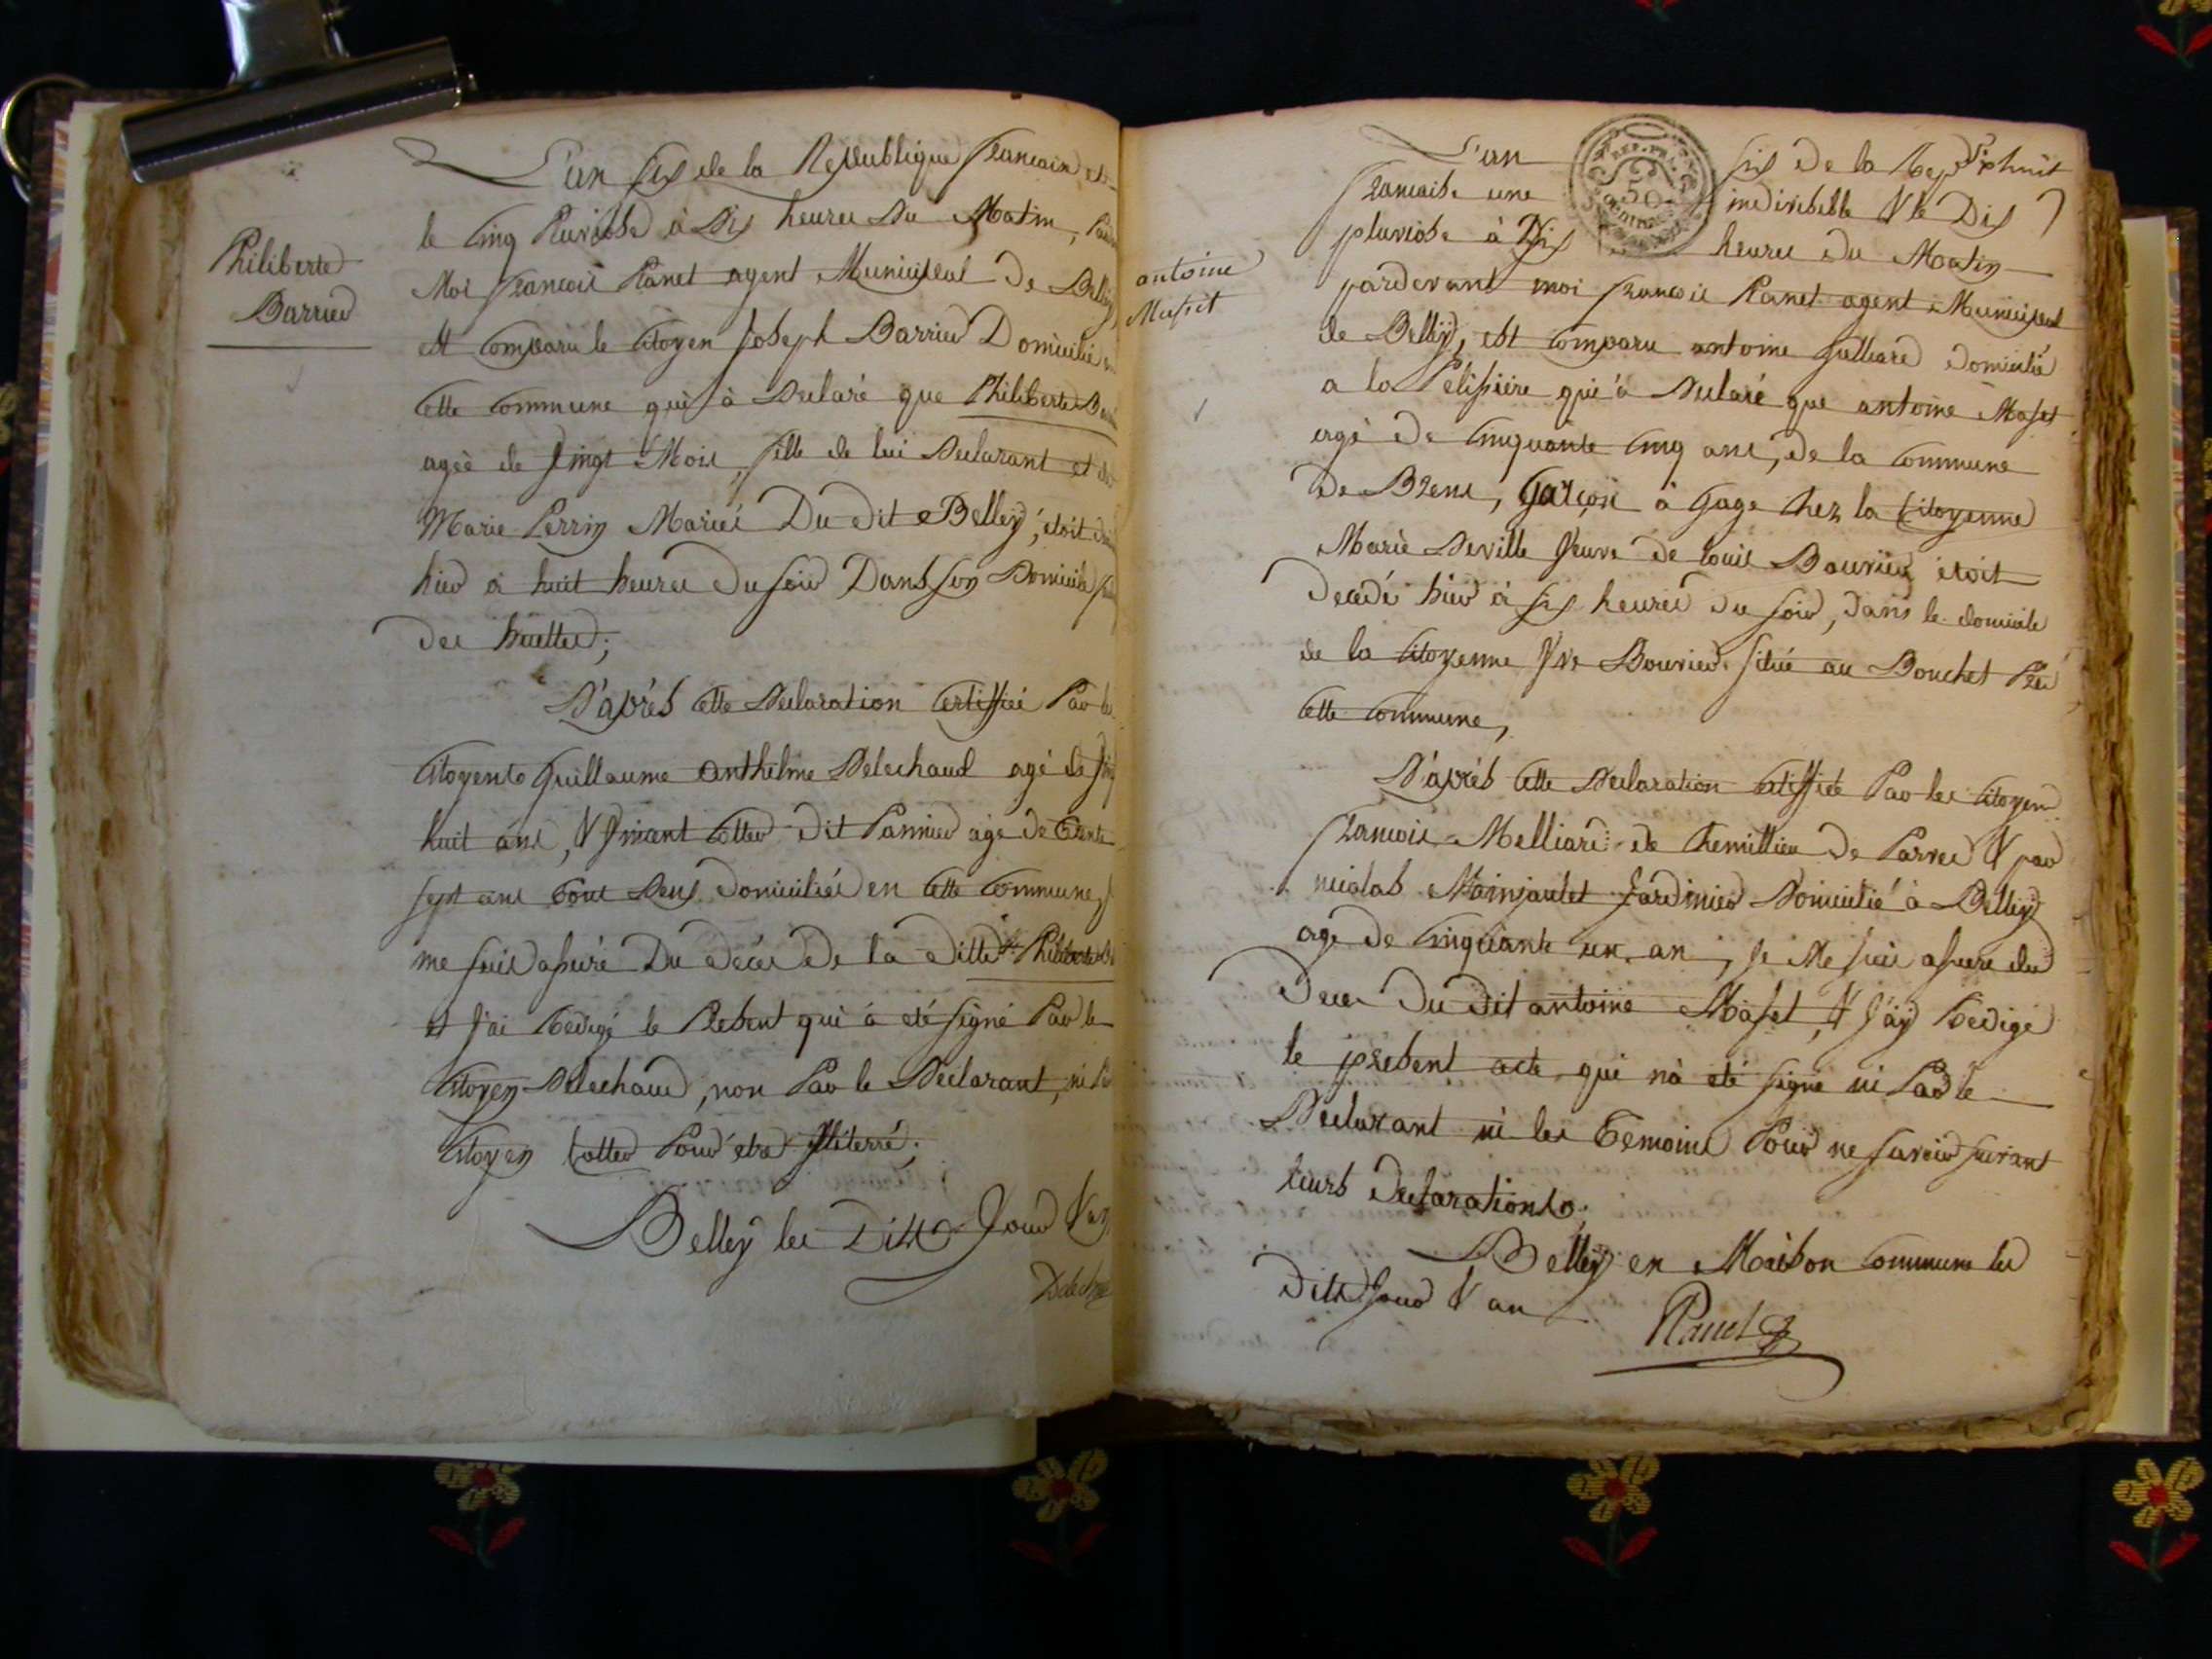 Philiberte
Barrier
L'an six de la Republique francaise et
le cinq Pluviose à Dix heures Du Matin, Par
Moi francois Ranet agent Municipal de Belley
est comparu le citoyen Joseph Barrier Domicilié en
cette commune qui à Declaré que Philiberte Bar
ageé de vingt Mois, fille de lui Declarant et de
Marie Perrin Mariés Du dit Belley, étoit
hier à huit heures Du soir Dans son Domicile
des huettes;
D'après cette Declaration certiffiée Par les
citoyents Guillaume anthelme Delechaud agé de ving
huit ans, & Vincent Cotter dit Pannier age de trente
sept ans tous Deux domiciliés en cette commune, J
me suis assuré Du décès De la ditte Philiberte Ba
et J'ai redigé le Présent qui à eté signé Par le
citoyen Delechaud, non Par le Declarant, ni Par
citoyen Cotter Pour etre Illiterré;
Belley les Dits Jour & an
Delechau
antoine
Masset
L'an six de la Rep
REP. FRA.
50
CENTIMES
francaise une indivisibelle & le Dix
pluviose à Dix heures du Matin
pardevant moi francois Ranet agent Municipal
de Belley, est comparu antoine Julliard domicilié
a la Pélissière qui à Declaré que antoine Maset
agé de cinquante cinq ans, de la commune
de Brens, Garçon à gage chez la Citoyenne
Marie Deville veuve de louis Bouvier étoit
Decedé hier à six heures du soir, dans le domicile
de la citoyenne Vve Bouvier situé au Bouchet Pré
cette commune,
D'après cette Declaration certiffiée Par les citoyen
francois Melliard de Chemillieu de Parves & par
nicolas Mainjaulet Jardinier Domicilié à Belley
age de cinquante un an, Je Me suis assure du
Deces Du dit antoine Maset, & J'ay redigé
le présent acte qui nà eté signé ni Par le
Declarant ni les temoins Pour ne savoir suivant
leurs Declarations;
Belley en Maison commune les
dits Jour & an
Ranet